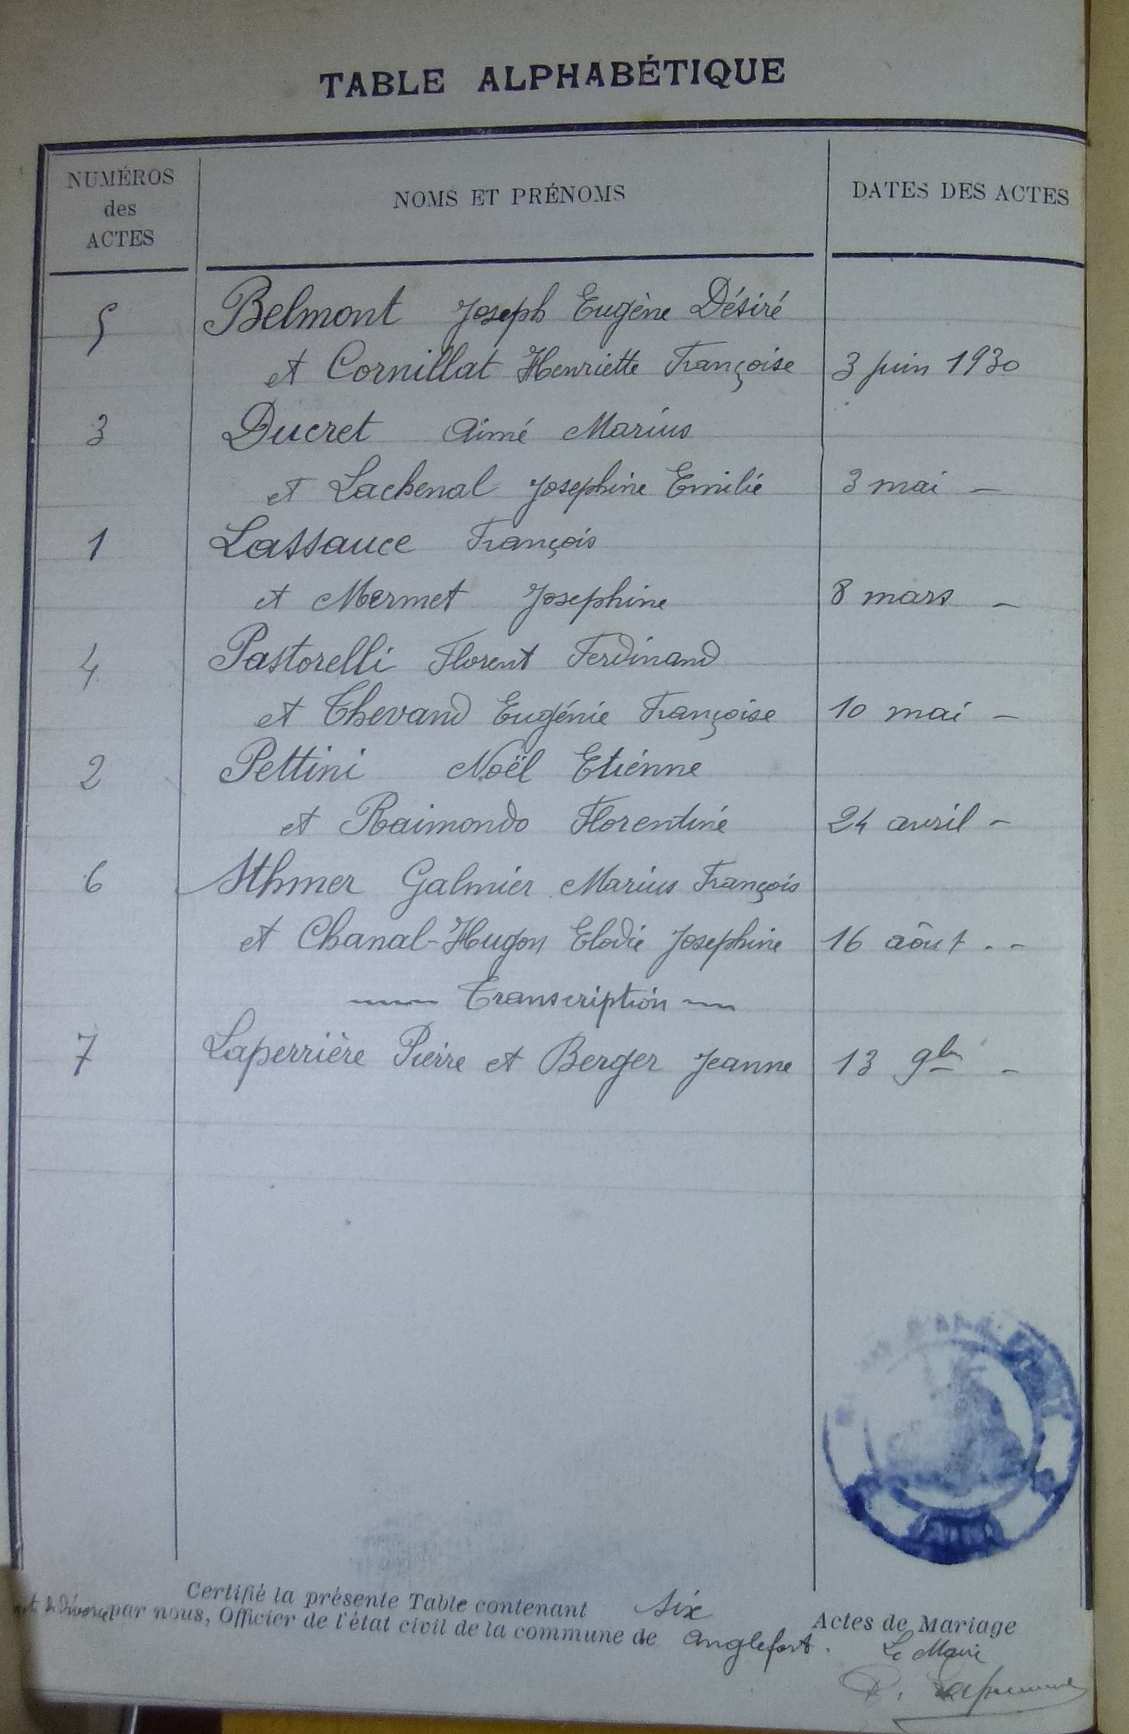 TABLE ALPHABÉTIQUE
NUMÉROS
des
ACTES
NOMS ET PRÉNOMS
DATES DES ACTES
5 Belmont Joseph Eugène Désiré
et Cornillat Henriette Françoise 3 juin 1930
3 Ducret Aimé Marius
et Lachenal Josephine Emilie 3 mai –
1 Lassauce François
et Mermet Josephine 8 mars –
4 Pastorelli Florent Ferdinand
et Thevand Eugénie Françoise 10 mai –
2 Pettini Noël Etienne
et Raimondo Florentine 24 avril –
6 Sthmer Galmier Marius François
et Chanal-Hugon Elodie Josephine 16 aôut . –
Transcription
7 Laperrière Pierre et Berger Jeanne 13 9bre –
Certifié la présente Table contenant six Actes de Mariage
de divorce par nous, Officier de l'état civil de la commune de Anglefort.
Le Maire